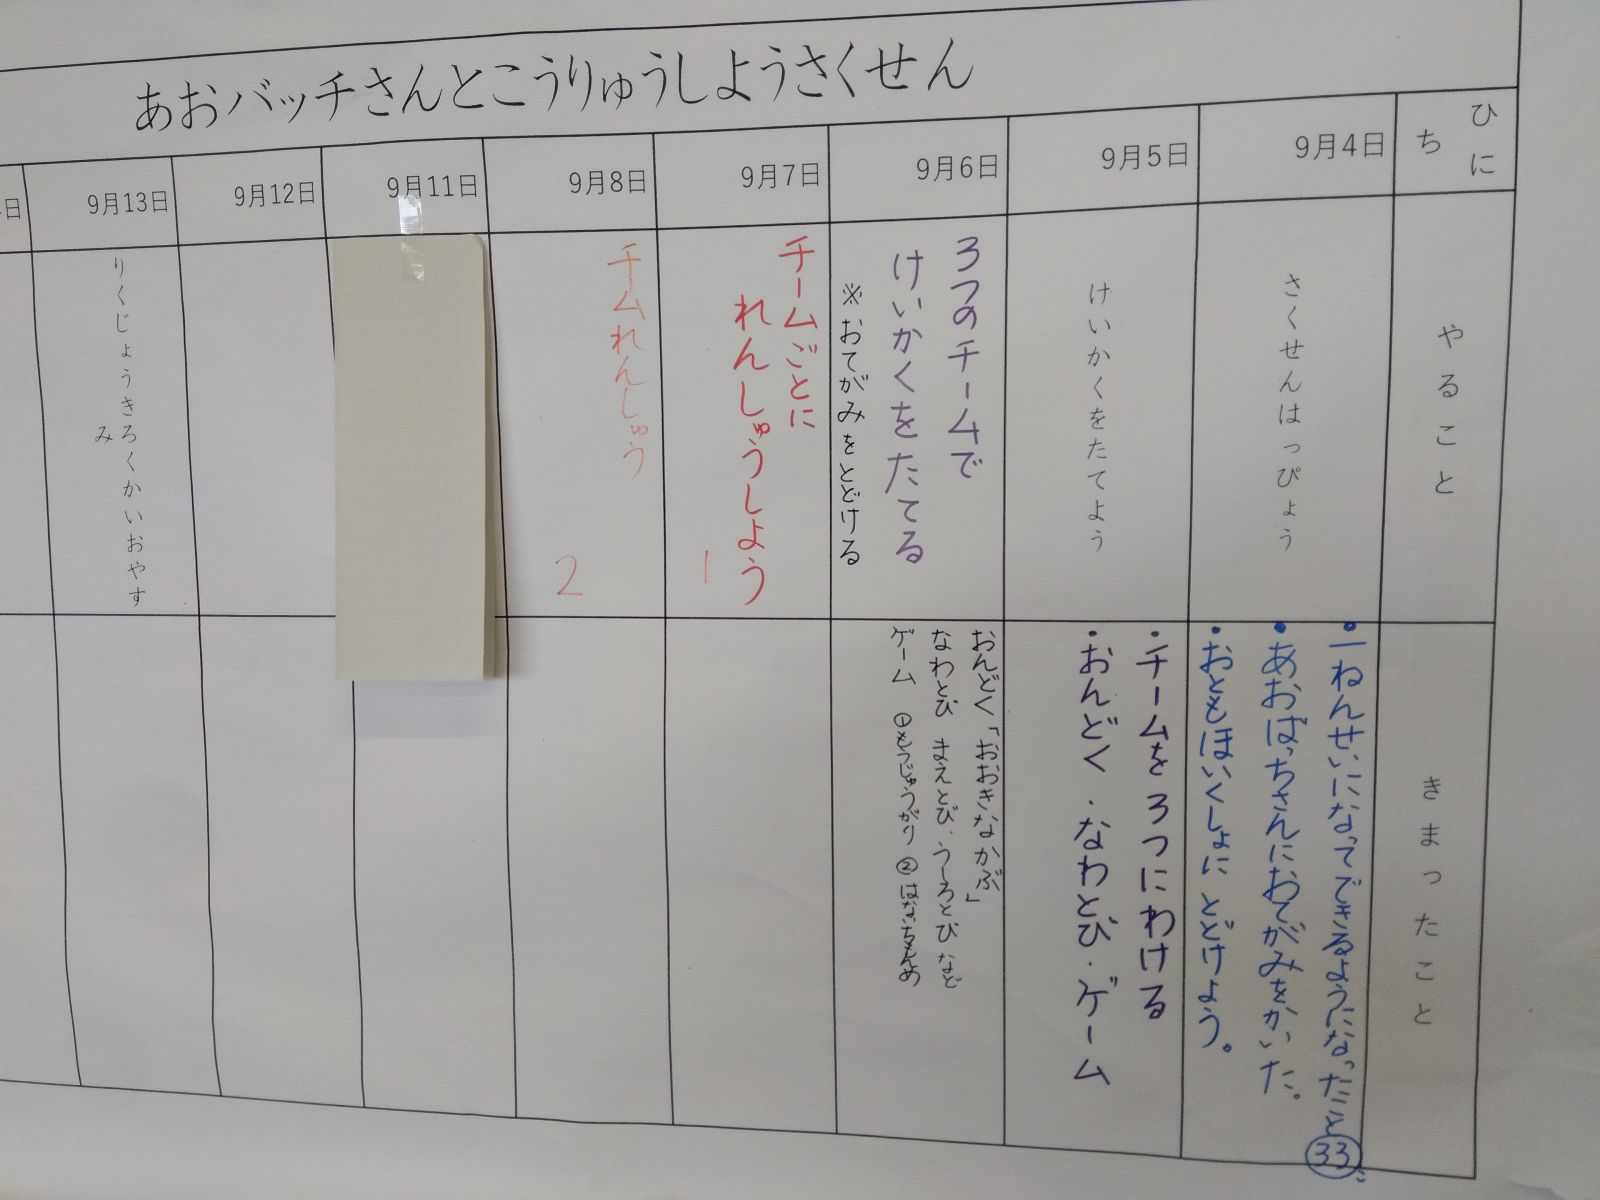 あおバッチさんとこうりゅうしようさくせん
ひにち
やること
きまったこと
9月4日
さくせんはっぴょう
・一ねんせいになってできるようになったこと㉝
・あおばっちさんにおてがみをかいた。
・おともほいくしょにとどけよう。
9月5日
けいかくをたてよう
・チームを3つにわける
・おんどく・なわとび・ゲーム
9月6日
3つのチームで
けいかくをたてる
※おてがみをとどける
おんどく「おおきなかぶ」
なわとび まえとび・うしろとびなど
ゲーム ①もうじゅうがり ②はないちもんめ
9月7日
チームごとに
れんしゅうしよう
1
9月8日
チームれんしゅう
2
9月11日
9月12日
9月13日
りくじょうきろくかいおやす
み
日